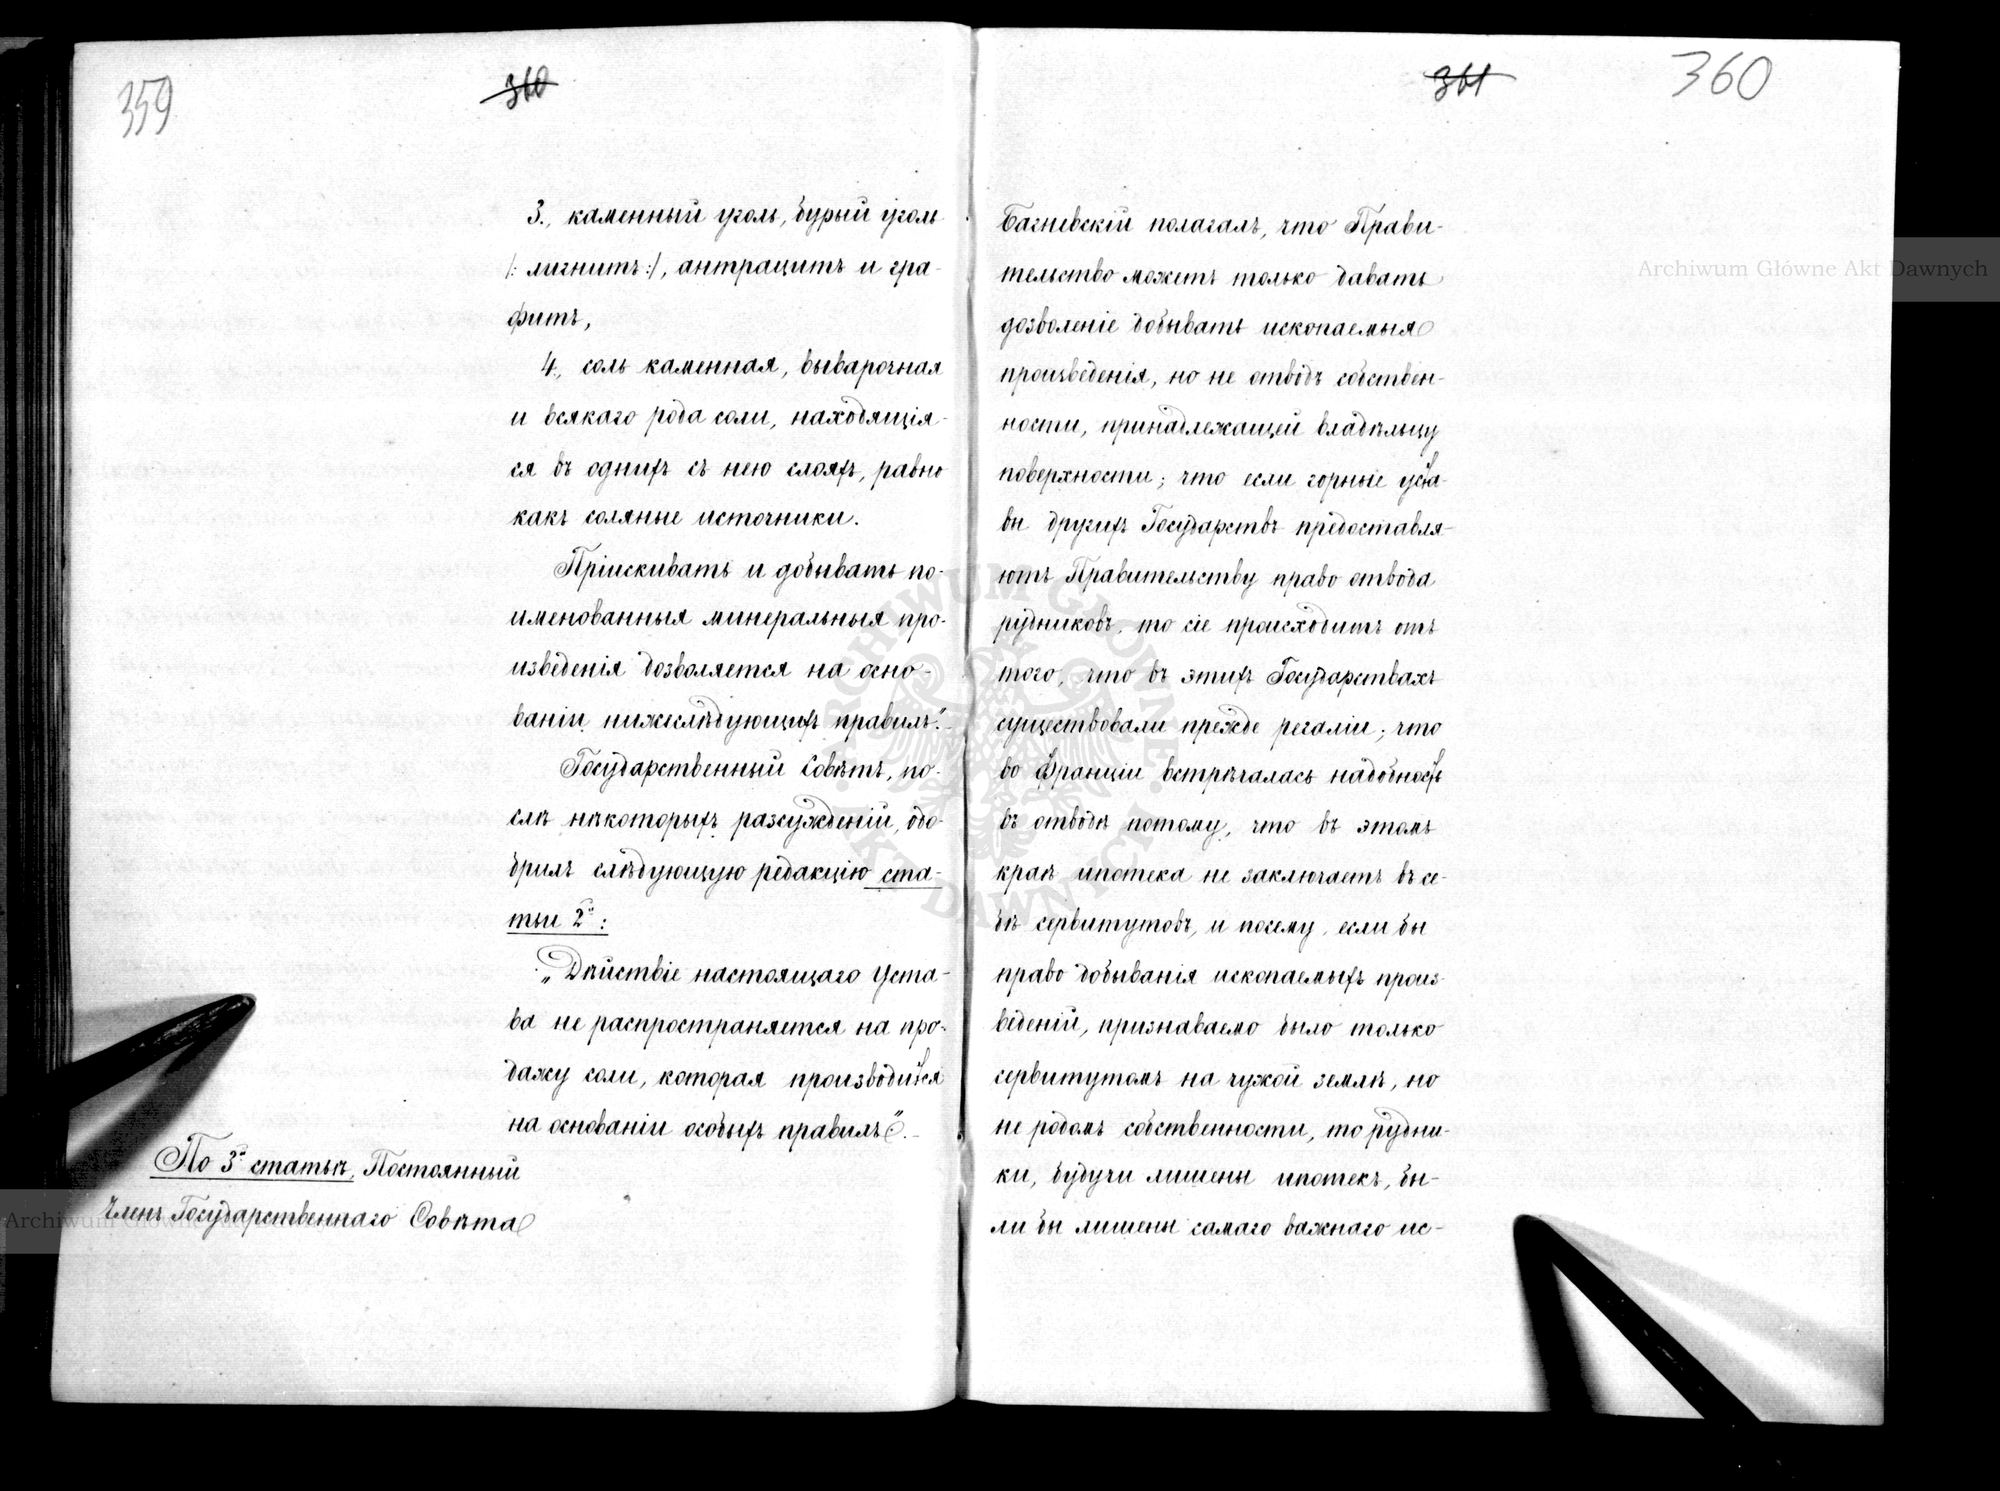 359
360
3., каменный уголь, бурый уголь
/: лигнитъ :/, антрацитъ и гра-
фитъ,
4., соль каменная, выварочная
и всякаго рода соли, находящія-
ся въ однихъ съ нею слояхъ, равно
какъ соляные источники.
Пріискивать и добывать по-
именованныя минеральныя про-
изведенія дозволяется на осно-
ваніи нижеслѣдующихъ правилъ".
Государственный Совѣтъ, по-
слѣ нѣкоторыхъ разсужденій, одо-
брилъ слѣдующую редакцію ста-
тьи 2й:
„Дѣйствіе настоящаго Уста-
ва не распространяется на про-
дажу соли, которая производится
на основаніи особыхъ правилъ".
По 3й статьѣ, Постоянный
Членъ Государственнаго Совѣта
361
360
Багневскій полагалъ, что Прави-
тельство можетъ только давать
дозволеніе добывать ископаемыя
произведенія, но не отводъ собствен-
ности, принадлежащей владѣльцу
поверхности; что если горные уста-
вы другихъ Государствъ предоставля-
ютъ Правительству право отвода
рудниковъ, то сіе происходитъ отъ
того, что въ этихъ Государствахъ
существовали прежде регаліи; что
во Франціи встрѣчалась надобность
въ отводѣ потому, что въ этомъ
краѣ ипотека не заключаетъ въ се-
бѣ сервитутовъ, и посему, если бы
право добыванія ископаемыхъ произ-
веденій, признаваемо было только
сервитутомъ на чужой землѣ, но
не родомъ собственности, то рудни-
ки, будучи лишены ипотекъ, бы-
ли бы лишены самаго важнаго ис-
Archiwum Główne Akt Dawnych
ARCHIWUM GŁÓWNE AKT DAWNYCH